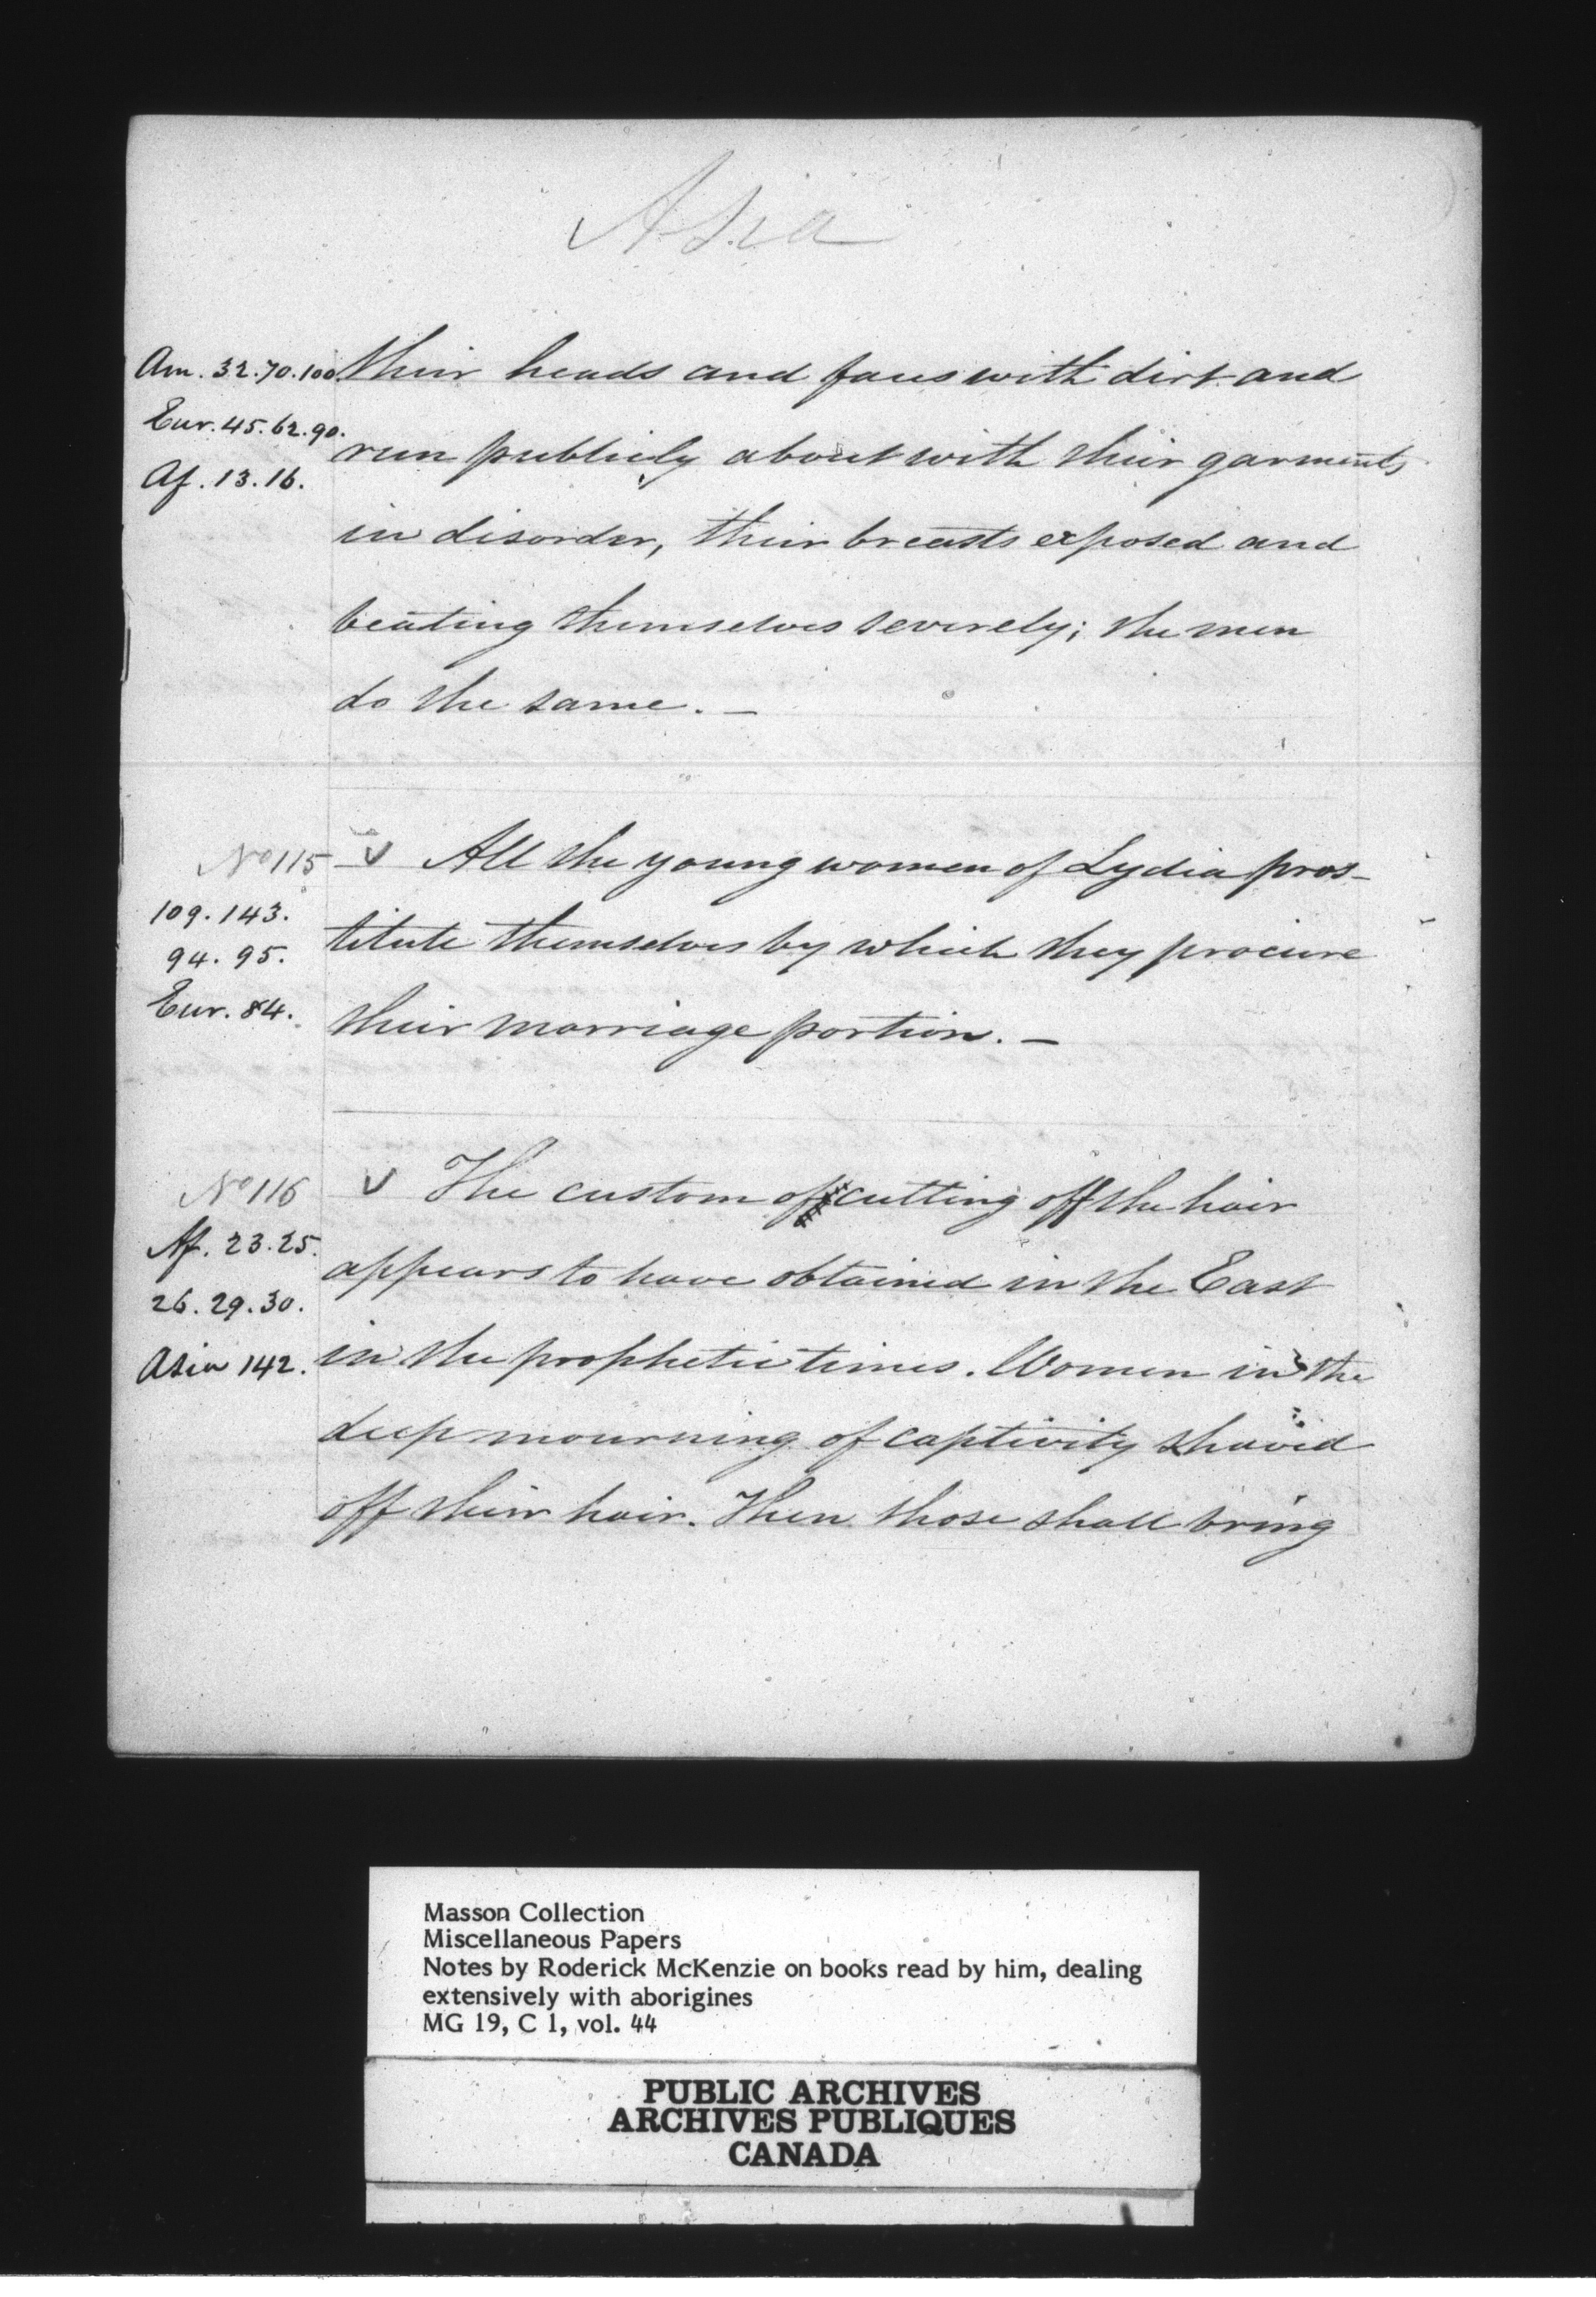 Asia
Am. 32.70.100. their heads and faces with dirt and
Eur. 45.62.90.
run publicly about with their garments
Af. 13.16.
in disorder, their breasts exposed and
beating themselves severely; the men
do the same. —
No 115 v All the young women of Lydia pros-
109. 143.
titute themselves by which they procure
94. 95.
Eur. 84.
their marriage portion. —
No 116 v The custom of cutting off the hair
Af. 23.25.
appears to have obtained in the East
26. 29. 30.
Asia 142. in the prophetic times. Women in the
deep mourning of captivity shaved
off their hair. Then those shall bring
Masson Collection
Miscellaneous Papers
Notes by Roderick McKenzie on books read by him, dealing
extensively with aborigines
MG 19, C 1, vol. 44
PUBLIC ARCHIVES
ARCHIVES PUBLIQUES
CANADA